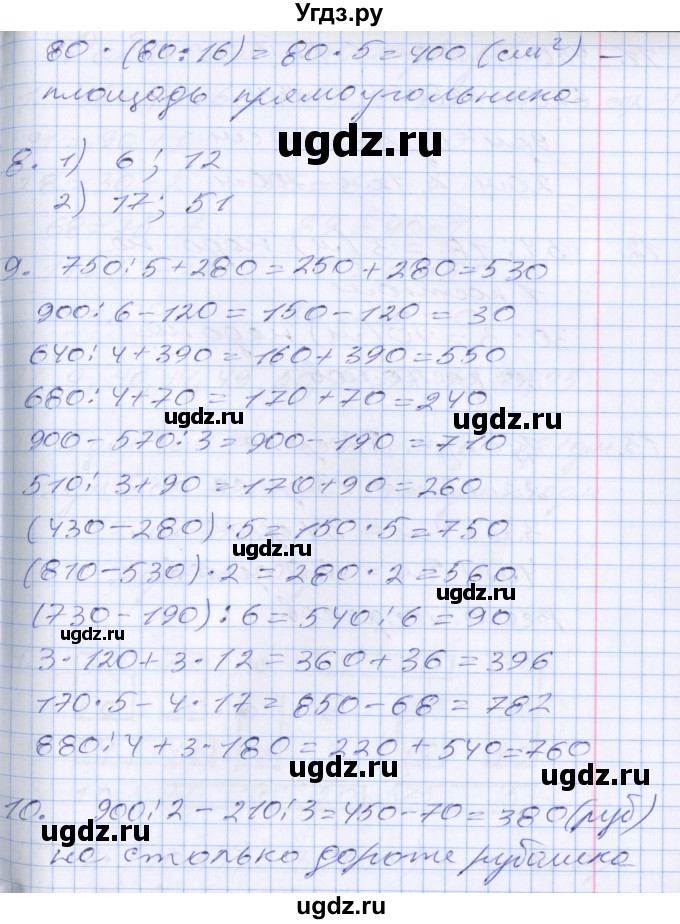 Угдз.ру
80 · (80:16) = 80 · 5 = 400 (см²) –
площадь прямоугольника
ugdz.ru
8. 1) 6 ; 12
2) 17; 51
9. 750:5+280=250+280=530
900:6-120=150-120=30
640:4+390=160+390=550
680:4+70=170+70=240
ugdz.ru
900-570:3=900-190=710
510:3+90=170+90=260
(430-280)·5=150·5=750
ugdz.ru
(810-530)·2=280·2=560
ugdz.ru
(730-190):6=540:6=90
ugdz.ru
3·120+3·12=360+36=396
170·5-4·17=850-68=782
880:4+3·180=220+540=760
ugdz.ru
10. 900:2-210:3=450-70=380(руб)
ugdz.ru
на столько дороже рубашка
ugdz.ru
ugdz.ru